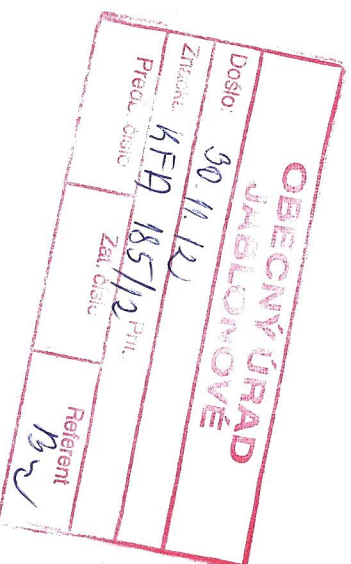 OBECNÝ ÚRAD
JABLONOVÉ
Došlo: 30.11.12
Značka: KFA 185/12 Pril.
Predch. číslo Zákl. číslo
Referent